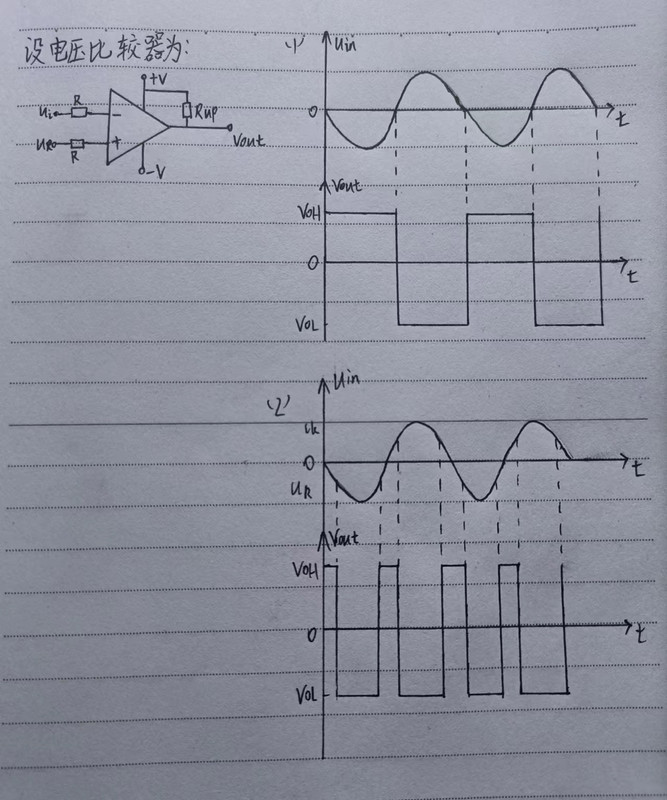 设电压比较器为:
(1)
Uin
+V
R
Ui
-
Rup
UR
+
R
Vout
-V
0
t
Vout
VOH
0
t
VOL
(2)
Uin
0
t
UR
Vout
VOH
0
t
VOL